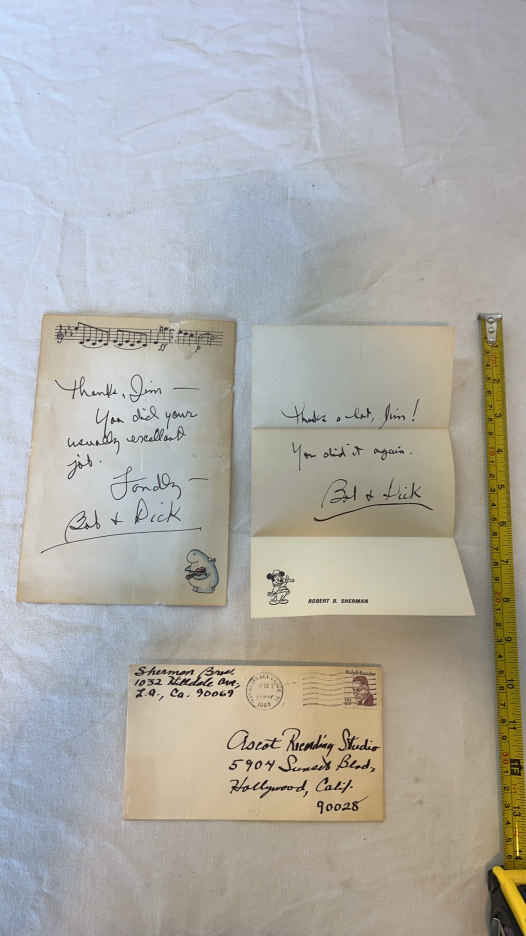 Thanks, Jim —
You did your
usually excellent
job.
Fondly —
Bob & Dick
Thanks a lot, Jim!
You did it again.
Bob & Dick
ROBERT B. SHERMAN
Sherman Bros.
1032 Hilldale Ave,
L.A., Ca. 90069
Ascot Recording Studio
5904 Sunset Blvd,
Hollywood, Calif.
90028